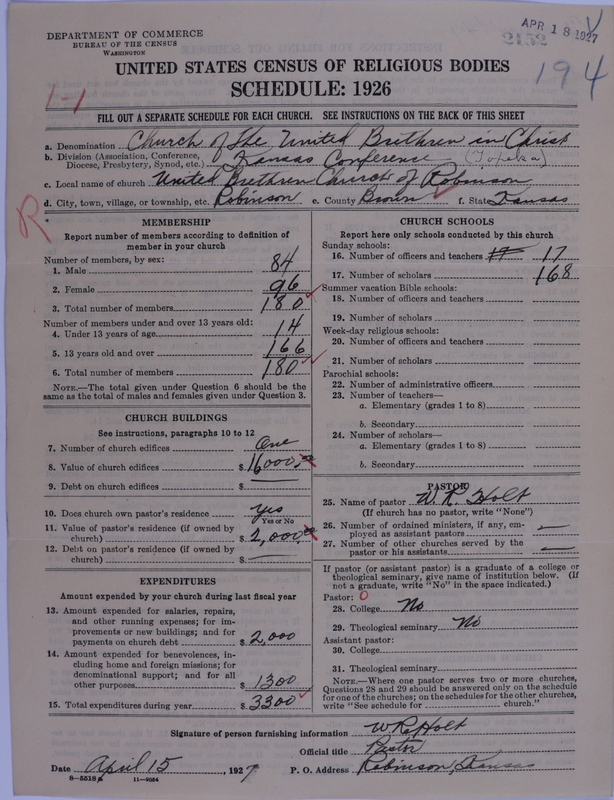 DEPARTMENT OF COMMERCE
BUREAU OF THE CENSUS
WASHINGTON
APR 18 1927
2152
194
UNITED STATES CENSUS OF RELIGIOUS BODIES
SCHEDULE: 1926
1-1
FILL OUT A SEPARATE SCHEDULE FOR EACH CHURCH. SEE INSTRUCTIONS ON THE BACK OF THIS SHEET
a. Denomination Church of the United Brethren in Christ
b. Division (Association, Conference, Diocese, Presbytery, Synod, etc.) Kansas Conference (Topeka)
c. Local name of church United Brethren Church of Robinson
d. City, town, village, or township, etc. Robinson e. County Brown f. State Kansas
R
MEMBERSHIP
Report number of members according to definition of
member in your church
Number of members, by sex:
1. Male 84
2. Female 96
3. Total number of members 180
Number of members under and over 13 years old:
4. Under 13 years of age 14
5. 13 years old and over 166
6. Total number of members 180
NOTE.—The total given under Question 6 should be the
same as the total of males and females given under Question 3.
CHURCH BUILDINGS
See instructions, paragraphs 10 to 12
7. Number of church edifices One
8. Value of church edifices $ 16000.00
9. Debt on church edifices $ —
10. Does church own pastor's residence yes
Yes or No
11. Value of pastor's residence (if owned by
church) $ 2,000.00
12. Debt on pastor's residence (if owned by
church) $ —
EXPENDITURES
Amount expended by your church during last fiscal year
13. Amount expended for salaries, repairs,
and other running expenses; for im-
provements or new buildings; and for
payments on church debt $ 2,000
14. Amount expended for benevolences, in-
cluding home and foreign missions; for
denominational support; and for all
other purposes $ 1300
15. Total expenditures during year $ 3300
CHURCH SCHOOLS
Report here only schools conducted by this church
Sunday schools:
16. Number of officers and teachers 17 17
17. Number of scholars 168
Summer vacation Bible schools:
18. Number of officers and teachers
19. Number of scholars
Week-day religious schools:
20. Number of officers and teachers
21. Number of scholars
Parochial schools:
22. Number of administrative officers
23. Number of teachers—
a. Elementary (grades 1 to 8)
b. Secondary
24. Number of scholars—
a. Elementary (grades 1 to 8)
b. Secondary
PASTOR
25. Name of pastor W. R. Holt
(If church has no pastor, write "None")
26. Number of ordained ministers, if any, em-
ployed as assistant pastors —
27. Number of other churches served by the
pastor or his assistants —
If pastor (or assistant pastor) is a graduate of a college or
theological seminary, give name of institution below. (If
not a graduate, write "No" in the space indicated.)
Pastor: 0
28. College No
29. Theological seminary No
Assistant pastor:
30. College
31. Theological seminary
NOTE.—Where one pastor serves two or more churches,
Questions 28 and 29 should be answered only on the schedule
for one of the churches; on the schedules for the other churches,
write "See schedule for church."
Signature of person furnishing information W R Holt
Official title Pastor
Date April 15, 1927 P. O. Address Robinson, Kansas
8-5518 a 11-9054